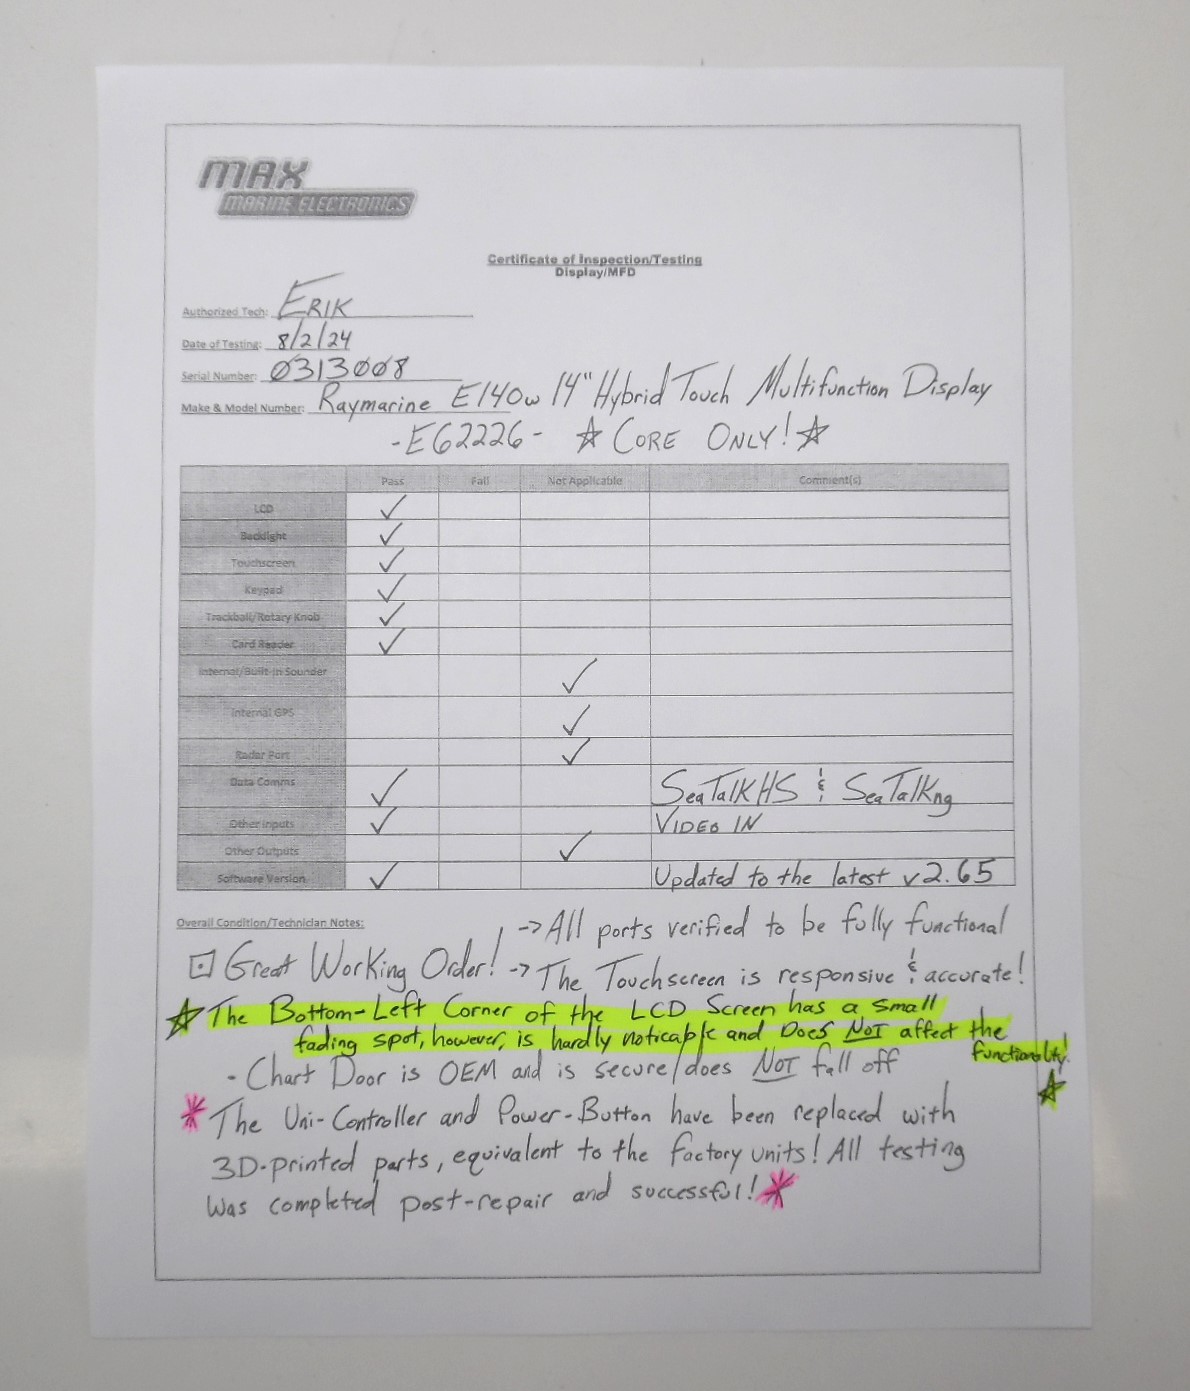 MAX
MARINE ELECTRONICS
Certificate of Inspection/Testing
Display/MFD
Authorized Tech: ERIK
Date of Testing: 8/2/24
Serial Number: 0313008
Make & Model Number: Raymarine E140w 14" Hybrid Touch Multifunction Display
- E62226 - ☆ CORE ONLY! ☆
Pass Fail Not Applicable Comment(s)
LCD ✓
Backlight ✓
Touchscreen ✓
Keypad ✓
Trackball/Rotary Knob ✓
Card Reader ✓
Internal/Built-in Sounder ✓
Internal GPS ✓
Radar Port ✓
Data Comms ✓ SeaTalkHS & SeaTalkng
Other Inputs ✓ VIDEO IN
Other Outputs ✓
Software Version ✓ Updated to the latest v2.65
Overall Condition/Technician Notes:
-> All ports verified to be fully functional
Great Working Order! -> The Touchscreen is responsive & accurate!
☆ The Bottom-Left Corner of the LCD Screen has a small
fading spot, however, is hardly noticable and Does NOT affect the
functionality! ☆
- Chart Door is OEM and is secure/does NOT fall off
* The Uni-Controller and Power-Button have been replaced with
3D-printed parts, equivalent to the factory units! All testing
was completed post-repair and successful! *